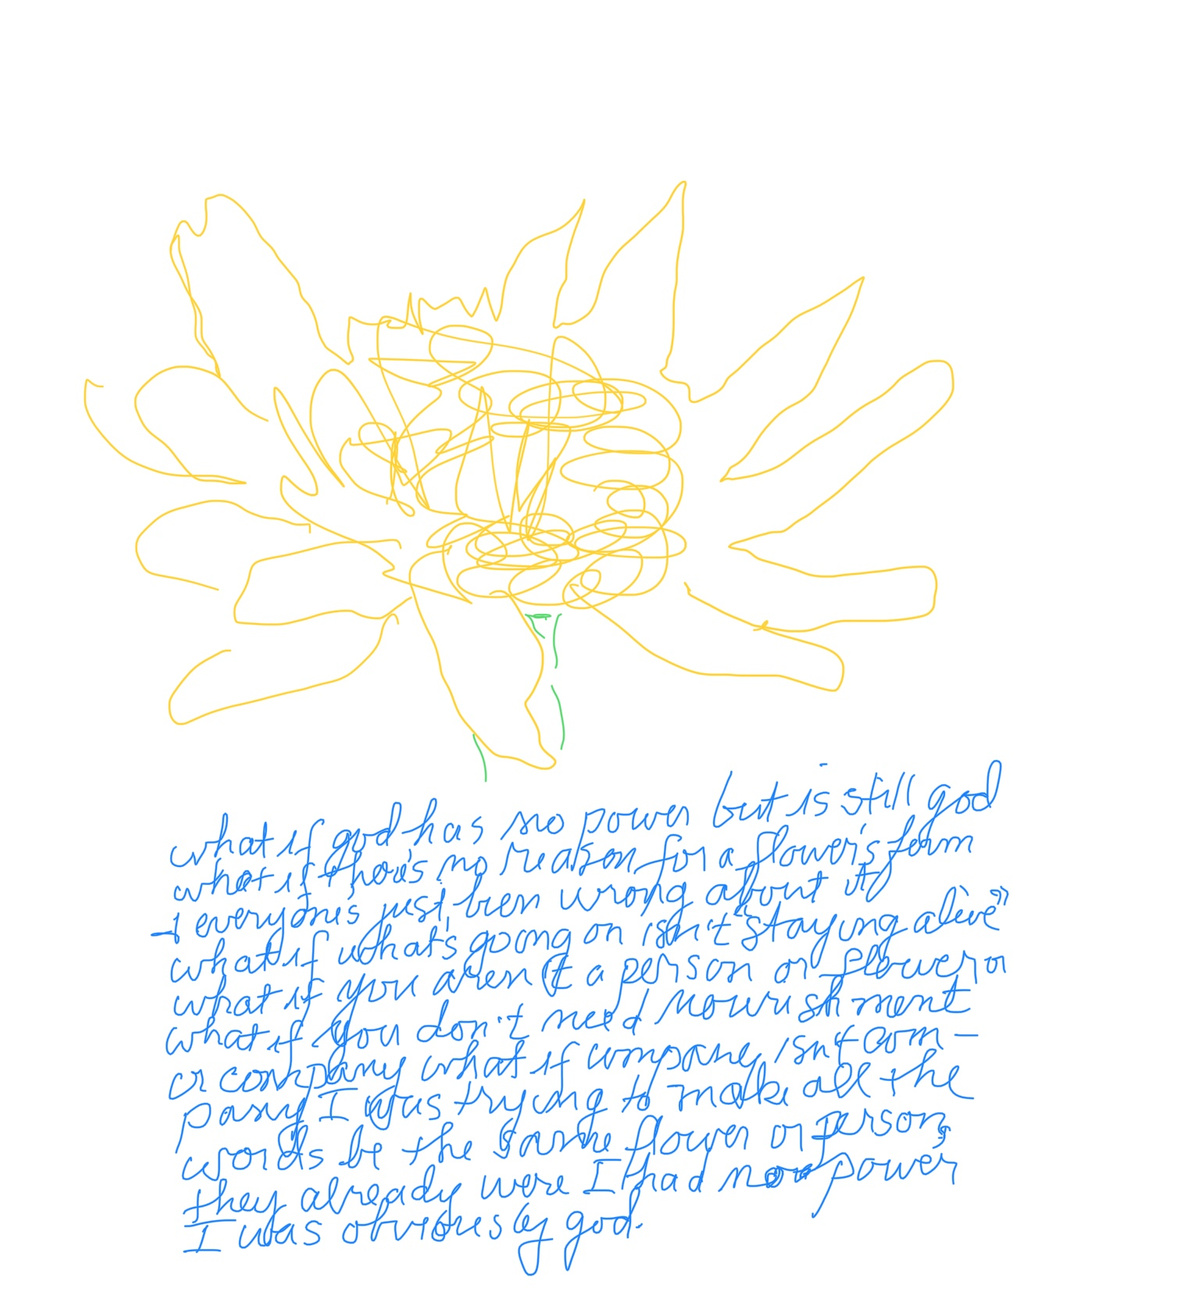 what if god has no power but is still god
what if there's no reason for a flower's form
& everyone's just been wrong about it
what if what's going on isn't "staying alive"
what if you aren't a person or flower or
what if you don't need nourishment
or company what if company isn't com-
pany I was trying to make all the
words be the same flower or person,
they already were I had no power
I was obviously god.